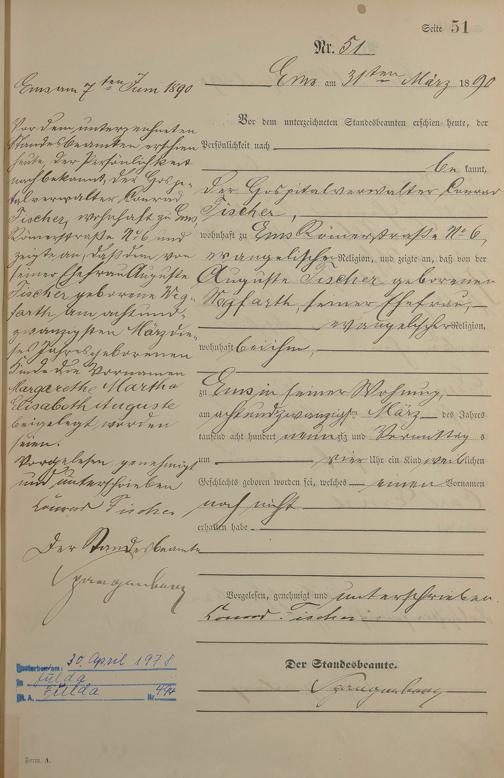 Seite 51
Nr. 51
Ems am 31ten März 1890
Vor dem unterzeichneten Standesbeamten erschien heute, der
Persönlichkeit nach
be kannt,
der Hospitalverwalter Conrad
Fischer,
wohnhaft zu Ems Römerstraße No 6,
evangelischer Religion, und zeigte an, daß von der
Auguste Fischer geborenen
seiner Ehefrau,
evangelischer Religion,
wohnhaft bei ihm,
zu Ems in seiner Wohnung,
am achtundzwanzigsten März des Jahres
tausend acht hundert neunzig und Vormittags
um vier Uhr ein Kind weiblichen
Geschlechts geboren worden sei, welches einen Vornamen
noch nicht
erhalten habe
Vorgelesen, genehmigt und unterschrieben.
Conrad Fischer.
Der Standesbeamte.
Spangenberg
Ems am 7ten Juni 1890
Vor dem unterzeichneten
Standesbeamten erschien
heute, der Persönlichkeit
nach bekannt, der Hospi-
talverwalter Conrad
Fischer, wohnhaft zu Ems
Römerstraße No 6, und
zeigte an, daß dem von
seiner Ehefrau Auguste
Fischer geborene
am achtund-
zwanzigsten März die-
ses Jahres geborenen
Kinde die Vornamen
Margarethe Martha
Elisabeth Auguste
beigelegt worden
seien.
Vorgelesen, genehmigt
und unterschrieben
Conrad Fischer
Der Standesbeamte
Spangenberg
Gestorben am: 30. April 1978
in Fulda
St. A. Fulda Nr.
Form. A.